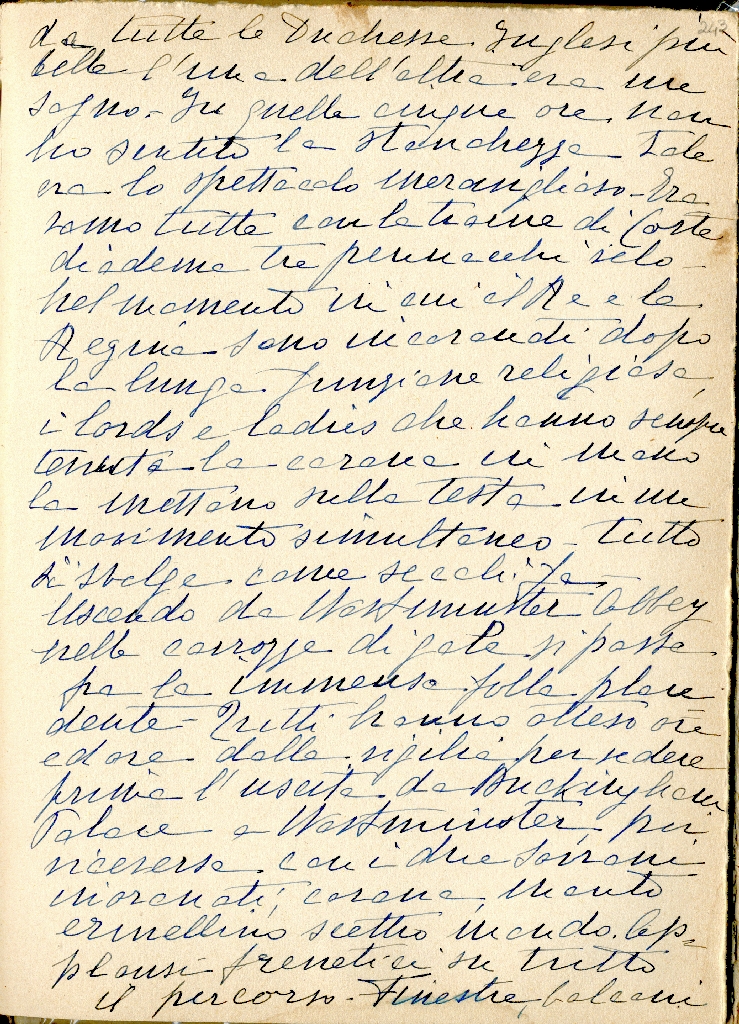 243
da tutte le Duchesse Inglesi più
belle l'una dell'altra era un
sogno - In quelle cinque ore non
ho sentito la stanchezza tale
era lo spettacolo meraviglioso - Era
vamo tutte con la traine di Corte
diadema tre pennacchi velo -
nel momento in cui il Re e la
Regina sono incoronati dopo
la lunga funzione religiosa,
i lords e ladies che hanno sempre
tenuta la corona in mano
la mettono sulla testa in un
movimento simultaneo - tutto
si svolge come
Uscendo da Westminster Abbey
nelle carrozze di gala si passa
fra la immensa folla plau
dente - Tutti hanno atteso ore
ed ore dalla vigilia per vedere
prima l'uscita da Buckingham
Palace a Westminster, poi
viceversa con i due Sovrani
incoronati, corona, manto
ermellino scettro mondo. Ap-
plausi frenetici su tutto
il percorso - Finestre, balconi